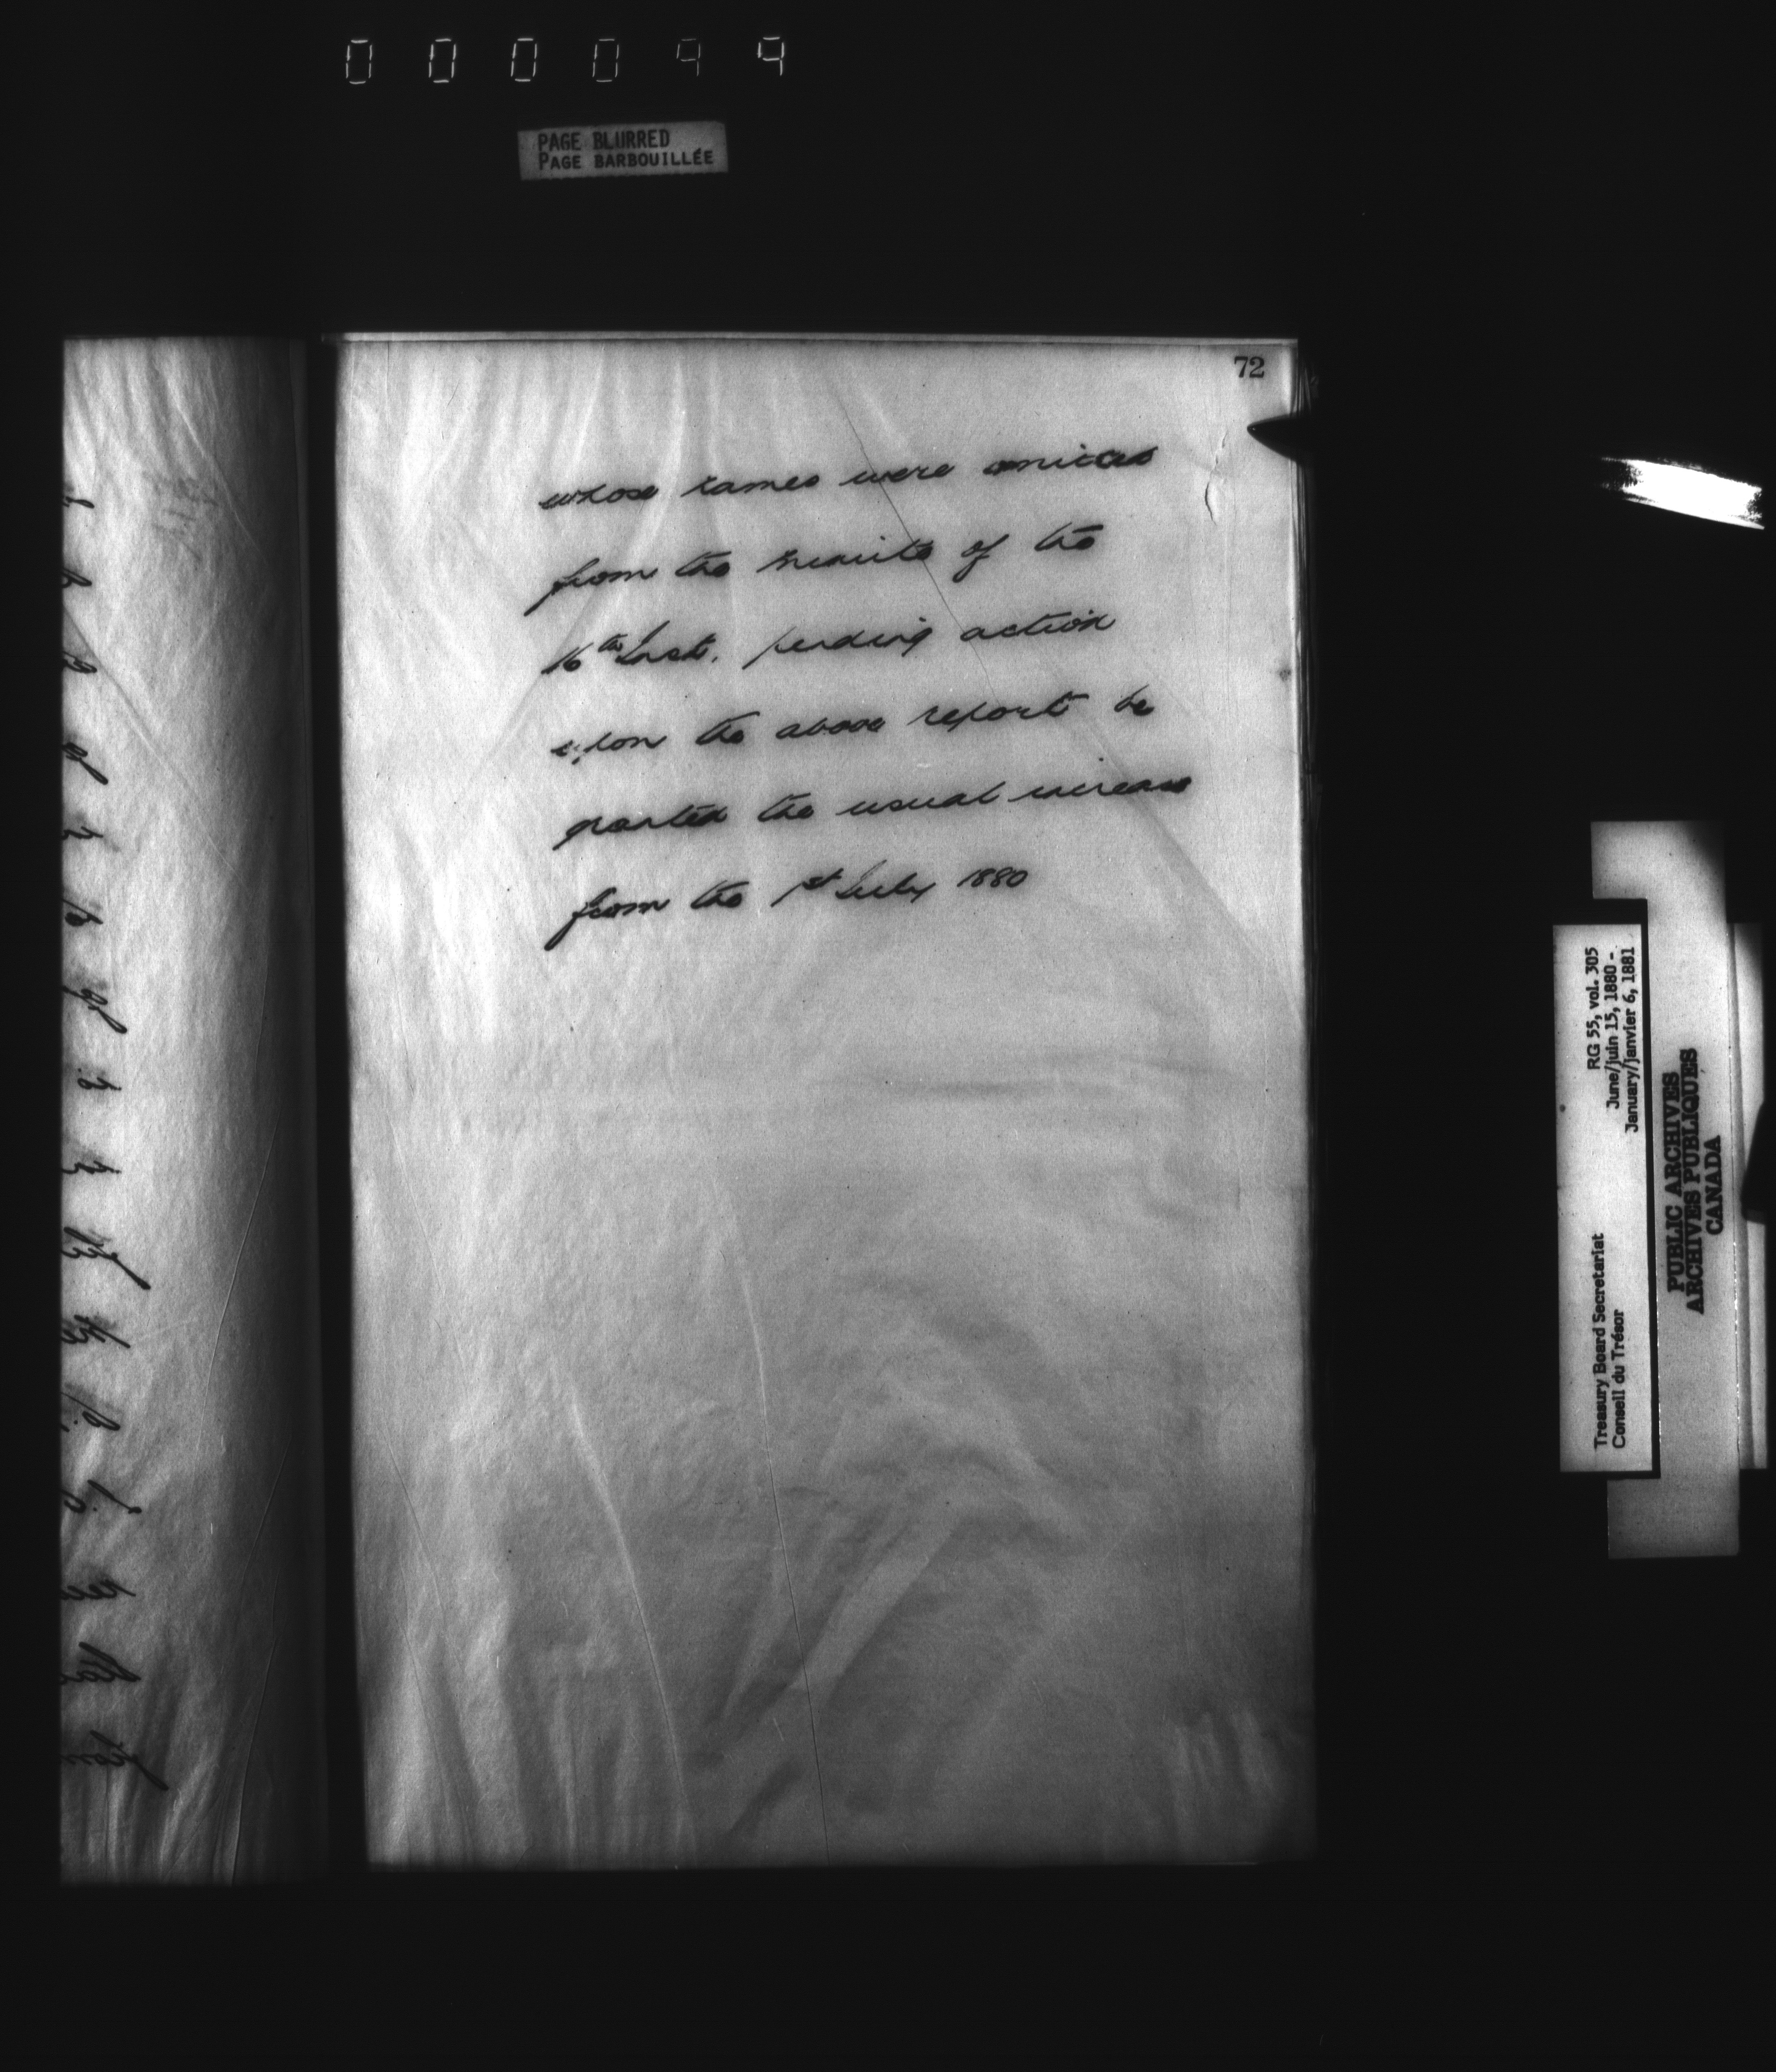 000099
PAGE BLURRED
PAGE BARBOUILLÉE
72
whose names were omitted
from the minute of the
16th Inst. pending action
upon the above report be
granted the usual increase
from the 1st July 1880
RG 55, vol. 305
June/juin 15, 1880 -
January/janvier 6, 1881
Treasury Board Secretariat
Conseil du Trésor
PUBLIC ARCHIVES
ARCHIVES PUBLIQUES
CANADA